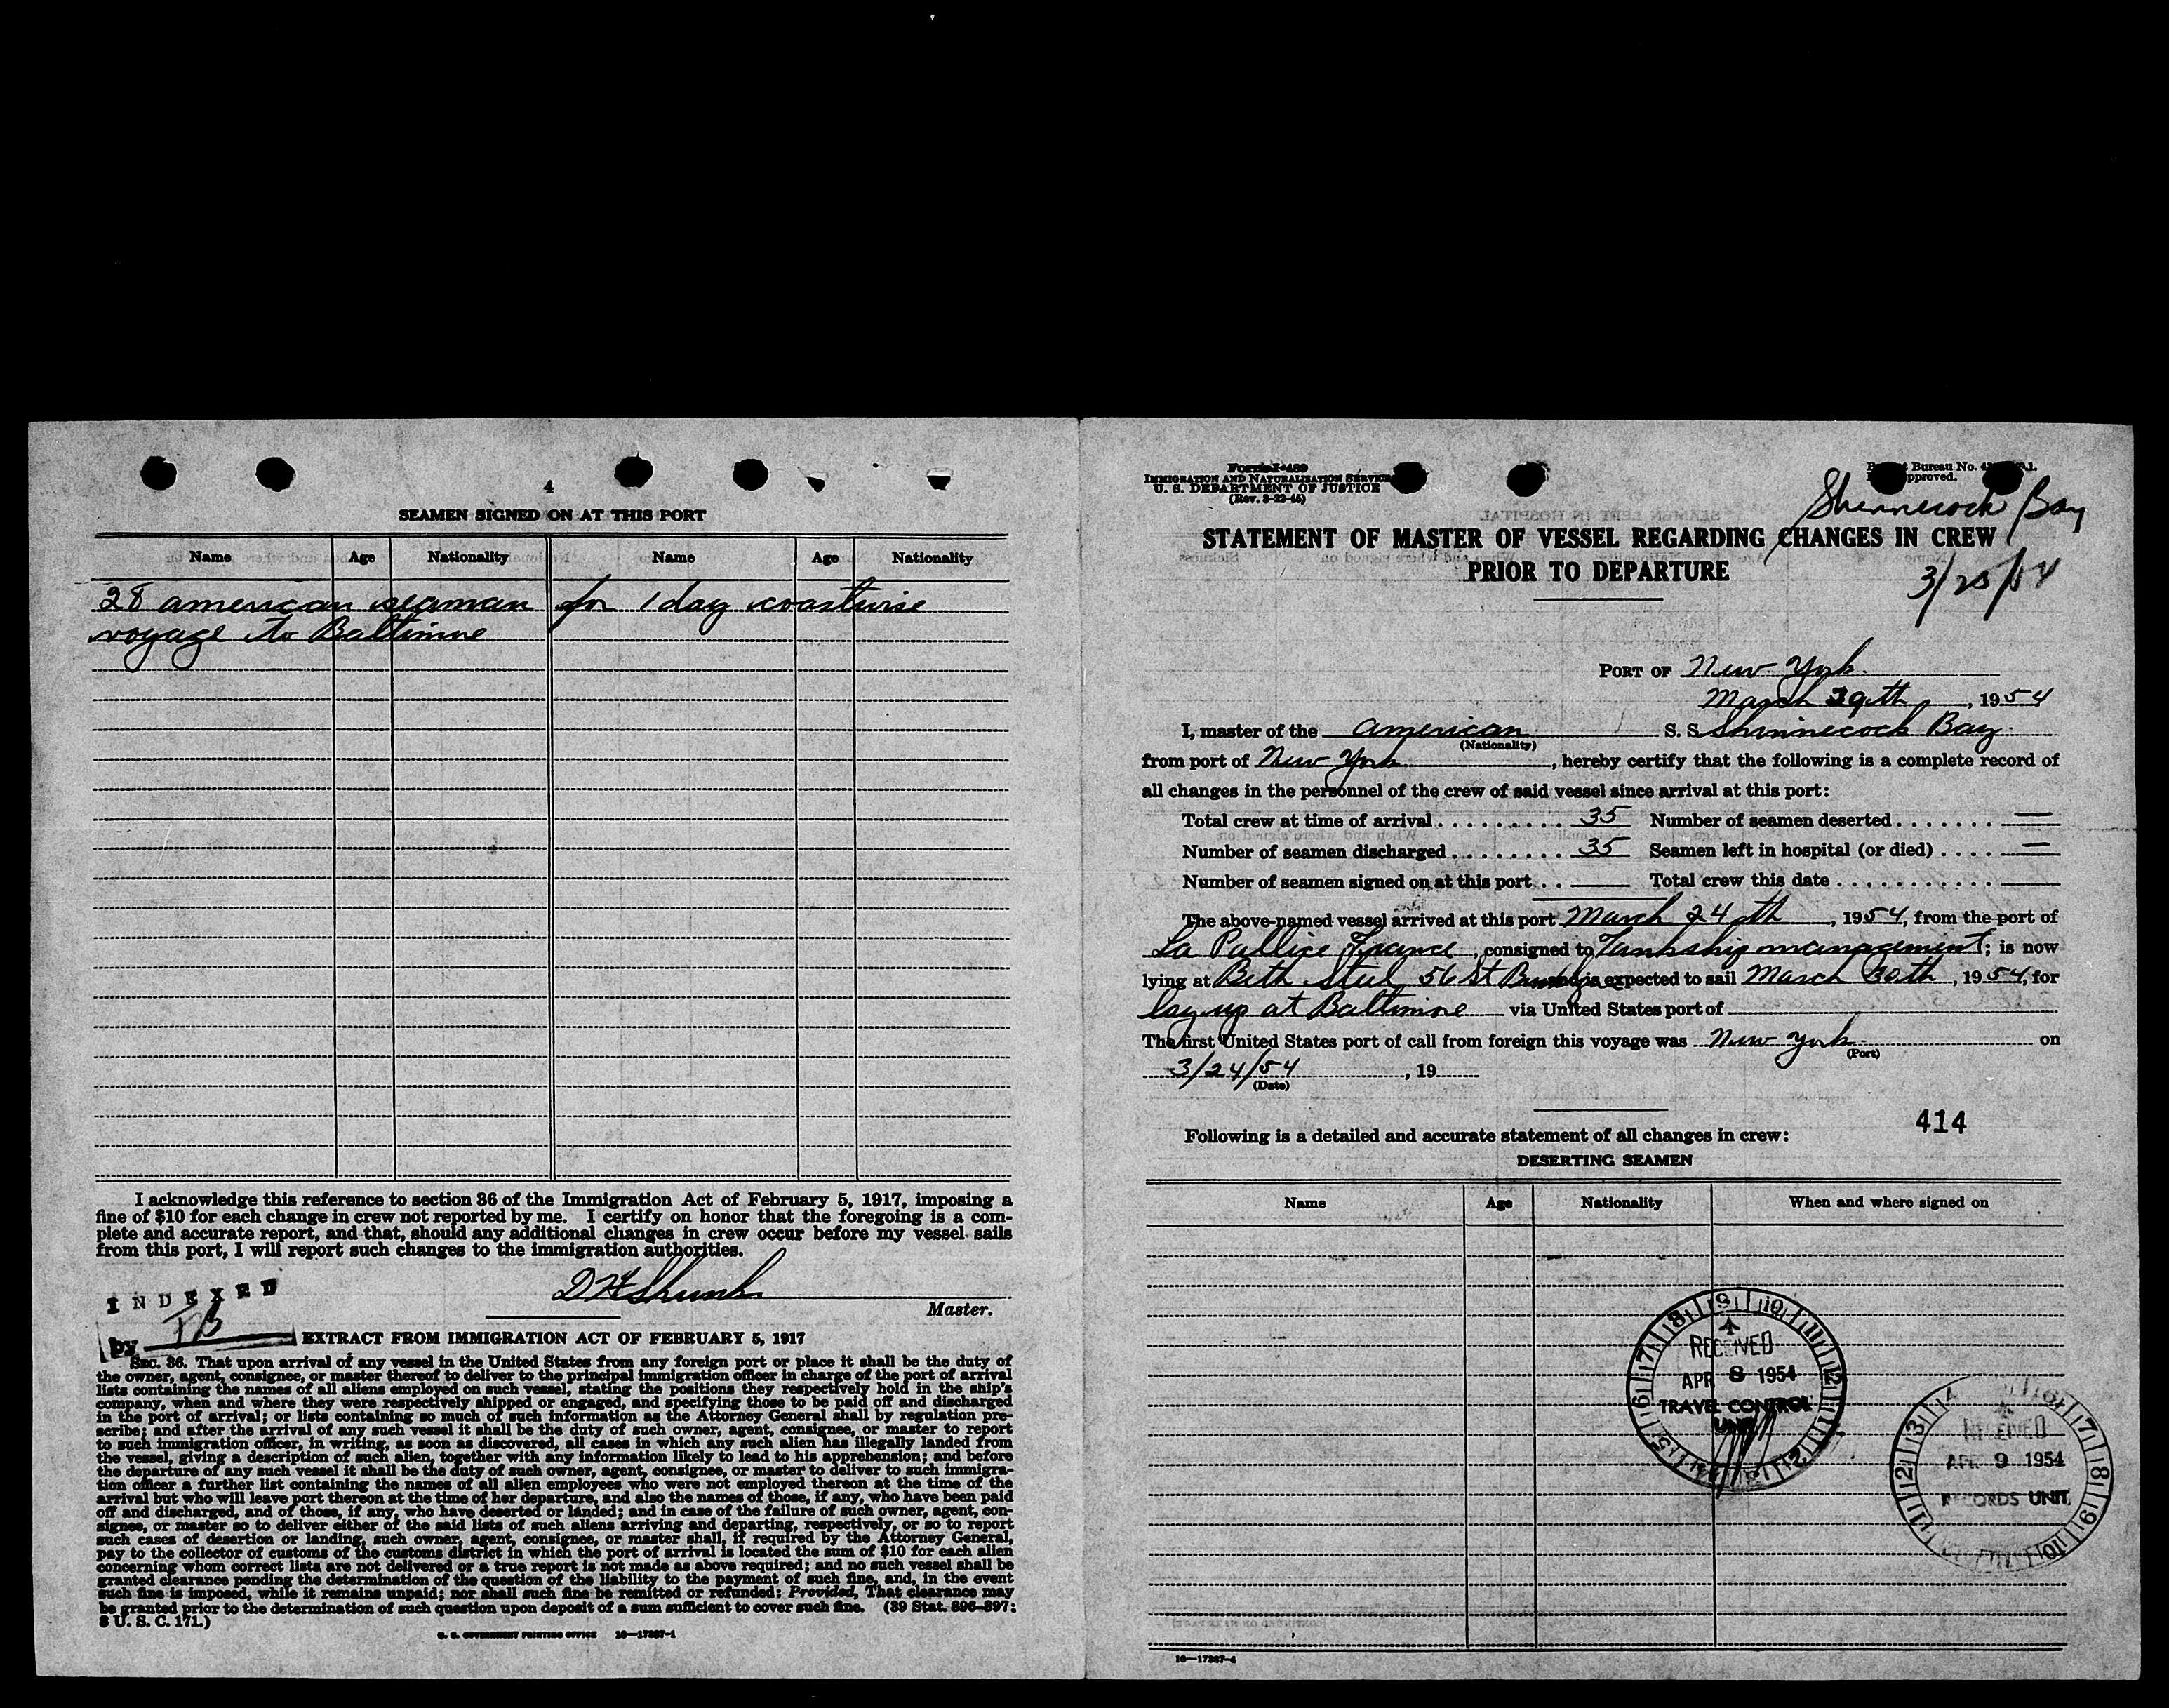 4
SEAMEN SIGNED ON AT THIS PORT
Name Age Nationality Name Age Nationality
28 american seaman for 1 day coastwise
voyage to Baltimore
I acknowledge this reference to section 36 of the Immigration Act of February 5, 1917, imposing a
fine of $10 for each change in crew not reported by me. I certify on honor that the foregoing is a com-
plete and accurate report, and that, should any additional changes in crew occur before my vessel sails
from this port, I will report such changes to the immigration authorities.
INDEXED
by
Master.
EXTRACT FROM IMMIGRATION ACT OF FEBRUARY 5, 1917
SEC. 36. That upon arrival of any vessel in the United States from any foreign port or place it shall be the duty of
the owner, agent, consignee, or master thereof to deliver to the principal immigration officer in charge of the port of arrival
lists containing the names of all aliens employed on such vessel, stating the positions they respectively hold in the ship's
company, when and where they were respectively shipped or engaged, and specifying those to be paid off and discharged
in the port of arrival; or lists containing so much of such information as the Attorney General shall by regulation pre-
scribe; and after the arrival of any such vessel it shall be the duty of such owner, agent, consignee, or master to report
to such immigration officer, in writing, as soon as discovered, all cases in which any such alien has illegally landed from
the vessel, giving a description of such alien, together with any information likely to lead to his apprehension; and before
the departure of any such vessel it shall be the duty of such owner, agent, consignee, or master to deliver to such immigra-
tion officer a further list containing the names of all alien employees who were not employed thereon at the time of the
arrival but who will leave port thereon at the time of her departure, and also the names of those, if any, who have been paid
off and discharged, and of those, if any, who have deserted or landed; and in case of the failure of such owner, agent, con-
signee, or master so to deliver either of the said lists of such aliens arriving and departing, respectively, or so to report
such cases of desertion or landing, such owner, agent, consignee, or master shall, if required by the Attorney General,
pay to the collector of customs of the customs district in which the port of arrival is located the sum of $10 for each alien
concerning whom correct lists are not delivered or a true report is not made as above required; and no such vessel shall be
granted clearance pending the determination of the question of the liability to the payment of such fine, and, in the event
such fine is imposed, while it remains unpaid; nor shall such fine be remitted or refunded: Provided, That clearance may
be granted prior to the determination of such question upon deposit of a sum sufficient to cover such fine. (39 Stat. 896-897;
8 U. S. C. 171.)
U. S. GOVERNMENT PRINTING OFFICE 16—17267-1
Form I-489
IMMIGRATION AND NATURALIZATION SERVICE
U. S. DEPARTMENT OF JUSTICE
(Rev. 3-22-45)
Bureau No.
approved.
Shennecock Bay
3/25/54
STATEMENT OF MASTER OF VESSEL REGARDING CHANGES IN CREW
PRIOR TO DEPARTURE
PORT OF New York
March 29th, 1954
I, master of the american S. S. Shinnecock Bay
(Nationality)
from port of New York, hereby certify that the following is a complete record of
all changes in the personnel of the crew of said vessel since arrival at this port:
Total crew at time of arrival 35 Number of seamen deserted —
Number of seamen discharged 35 Seamen left in hospital (or died) —
Number of seamen signed on at this port Total crew this date
The above-named vessel arrived at this port March 24th, 1954, from the port of
La Pallice France, consigned to Tankship management; is now
lying at Beth Steel 56 St and is expected to sail March 30th, 1954, for
lay up at Baltimore via United States port of
The first United States port of call from foreign this voyage was New York on
(Port)
3/24/54, 19
(Date)
414
Following is a detailed and accurate statement of all changes in crew:
DESERTING SEAMEN
Name Age Nationality When and where signed on
RECEIVED
APR 8 1954
TRAVEL CONTROL
UNIT
RECEIVED
APR 9 1954
RECORDS UNIT
16—17267-4